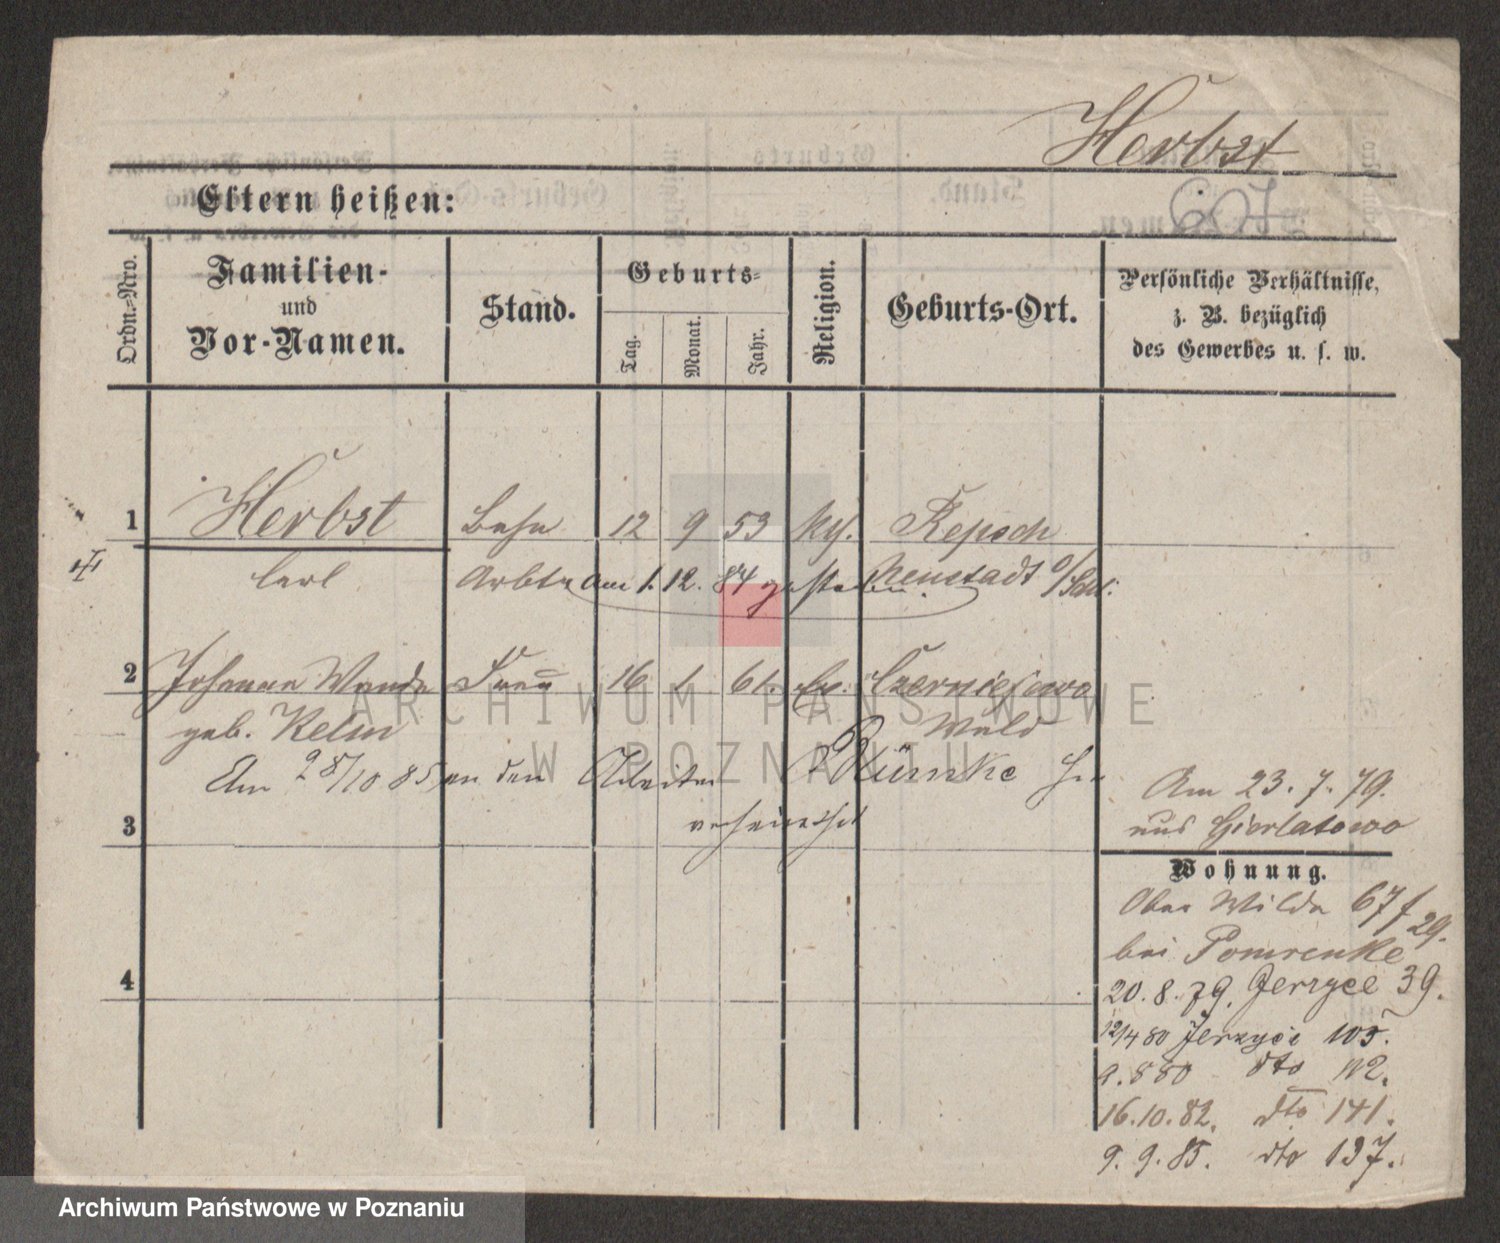 Herbst
Eltern heißen:
Ordn.-Nro.
Familien-
und
Vor-Namen.
Stand.
Geburts-
Tag.
Monat.
Jahr.
Religion.
Geburts-Ort.
Persönliche Verhältnisse,
z. B. bezüglich
des Gewerbes u. s. w.
1 Herbst Bahn 12 9 53 kth. Repsch
Carl Arbtr am 1. 12. 84 gestorben. Neustadt O/Schl.
2 Johanna Wanda Frau 16 1. 61. Ev. Czerniejewo
geb. Kelm Wald
Am 28/10 85 an den Arbeiter
verheirathet
3
4
Am 23. 7. 79.
aus Gierlatowo
Wohnung.
Ober Wilda 67 f 29.
bei Pomrenke
20. 8. 79. Jerzyce 39.
12/4 80 Jerzyce 105.
9. 8 80 dto 112.
16. 10. 82. dto 141.
9. 9. 85. dto 137.
ARCHIWUM PAŃSTWOWE
W POZNANIU
Archiwum Państwowe w Poznaniu